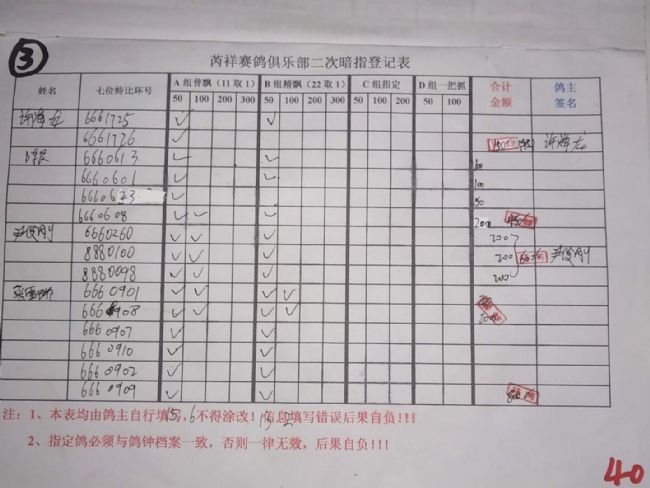 ③
芮祥赛鸽俱乐部二次暗指登记表
姓名 七位特比环号 A 组普飘（11 取 1） B 组精飘（22 取 1） C 组指定 D 组一把抓 合计金额 鸽主签名
50 100 200 300 50 100 200 300 50 100 200 300 50 100
许海龙 6661725 ✓ ✓
6661726 ✓ 许海龙
6660613 ✓ ✓ 100
6660601 ✓ ✓ 100
✓ 50
6660608 ✓ ✓ ✓ 200
尹俊刚 6660260 ✓ ✓ ✓ 200
8880100 ✓ ✓ ✓ 200 尹俊刚
8880098 ✓ ✓ ✓ 200
6660901 ✓ ✓ ✓ ✓
6660908 ✓ ✓ ✓ ✓
6660907 ✓ ✓
6660910 ✓ ✓
6660902 ✓ ✓
6660909 ✓ ✓
15 6 13 2
注：1、本表均由鸽主自行填写，不得涂改！信息填写错误后果自负!!!
2、指定鸽必须与鸽钟档案一致，否则一律无效，后果自负!!!
40